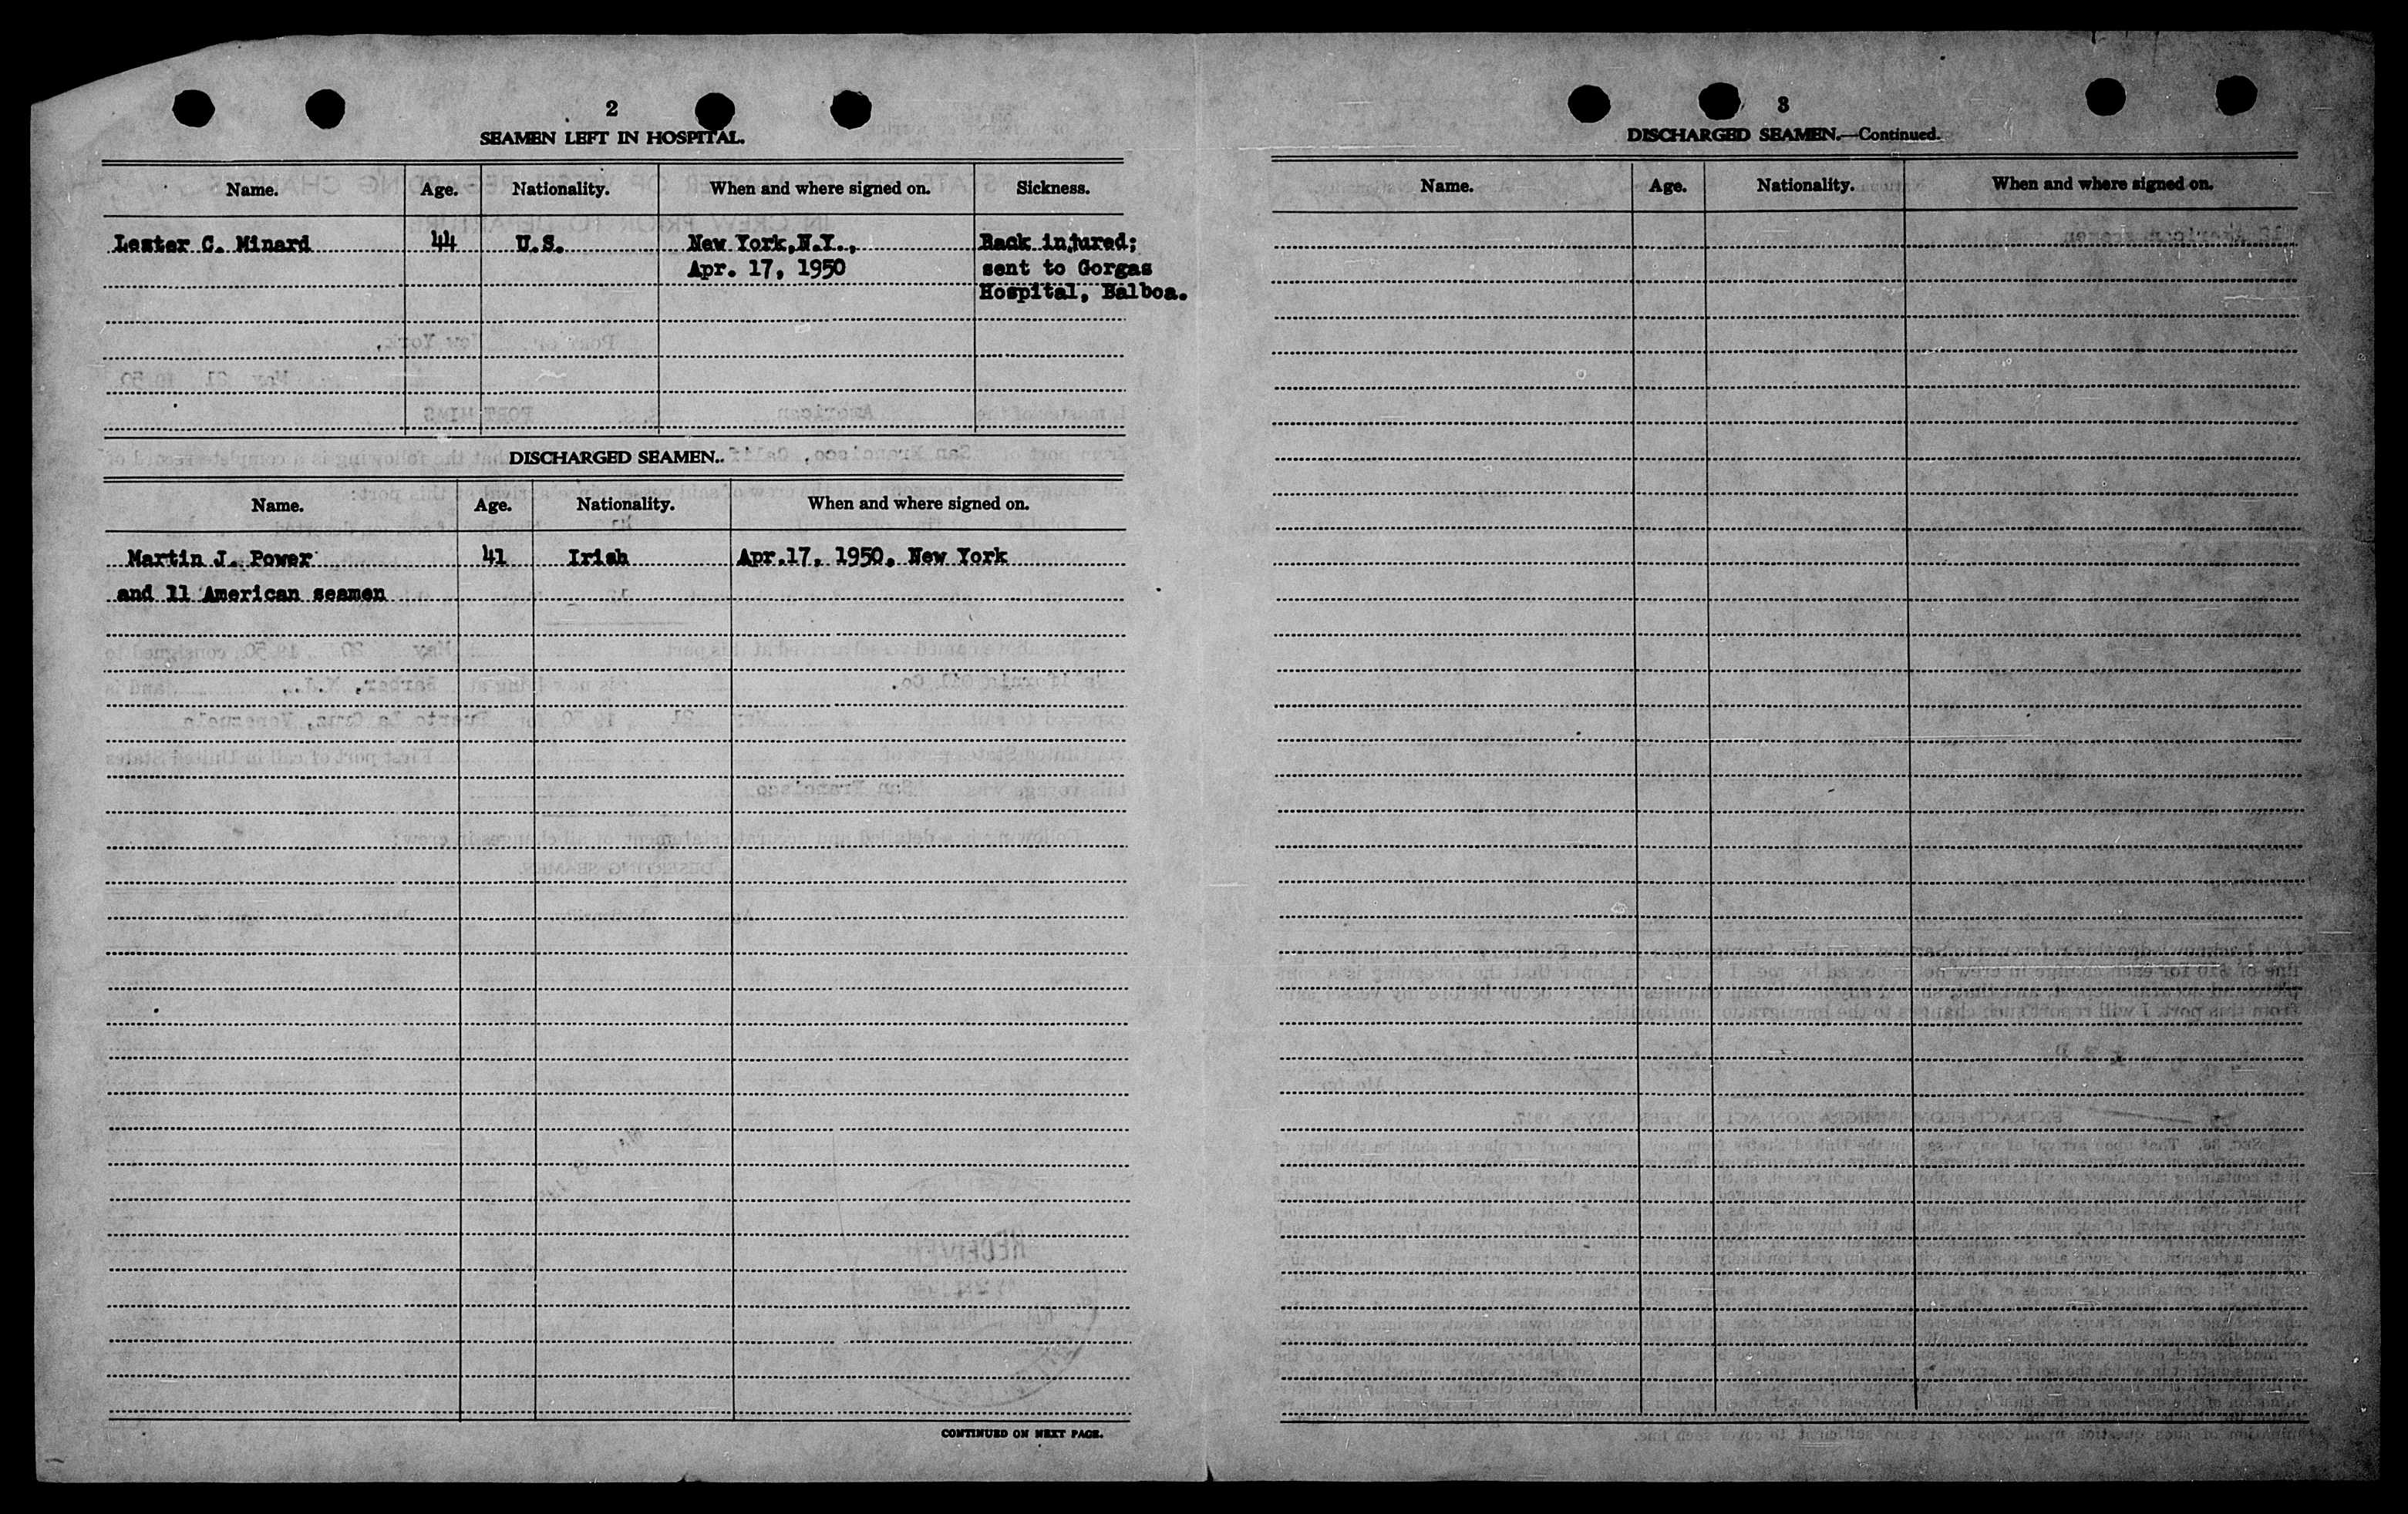 2
SEAMEN LEFT IN HOSPITAL.
Name. Age. Nationality. When and where signed on. Sickness.
Lester C. Minard 44 U.S. New York, N.Y., Back injured;
Apr. 17, 1950 sent to Gorgas
Hospital, Balboa.
DISCHARGED SEAMEN.
Name. Age. Nationality. When and where signed on.
Martin J. Power 41 Irish Apr.17, 1950, New York
and 11 American seamen
CONTINUED ON NEXT PAGE.
3
DISCHARGED SEAMEN.—Continued.
Name. Age. Nationality. When and where signed on.